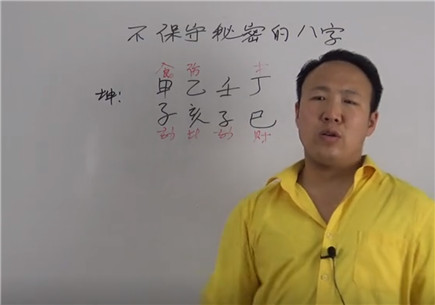 不保守秘密的八字
食 伤 才
坤: 甲 乙 壬 丁
子 亥 子 巳
劫 比 劫 财